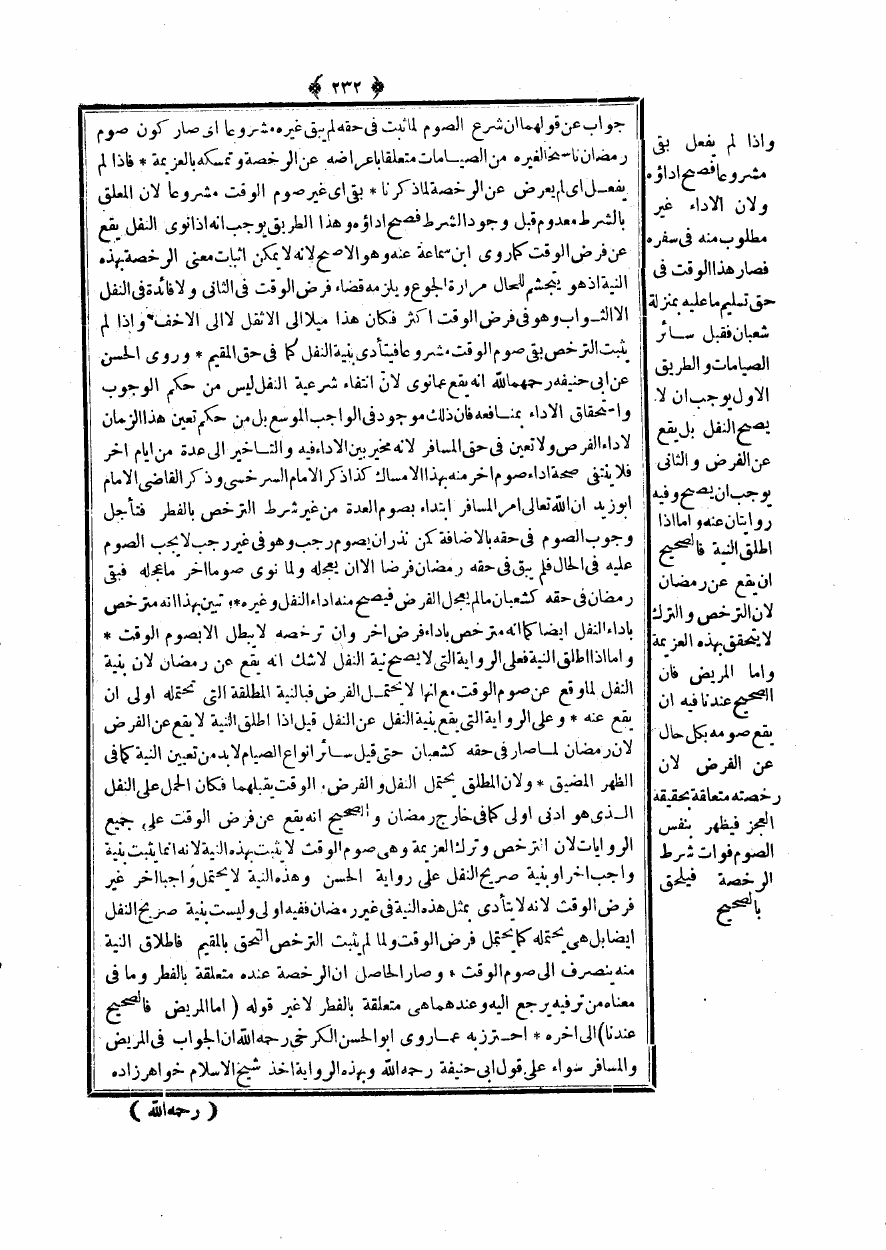 ﴿ ٢٣٢ ﴾
جواب عن قولهما ان شرع الصوم لما ثبت فى حقه لم يبق غيره مشروعا اى صار كون صوم
رمضان ناسخا لغيره من الصيامات متعلقا باعراضه عن الرخصة وتمسكه بالعزيمة * فاذا لم
يفعل اى لم يعرض عن الرخصة لما ذكرنا * بقى اى غير صوم الوقت مشروعا لان المعلق
بالشرط معدوم قبل وجود الشرط فصح اداؤه وهذا الطريق يوجب انه اذا نوى النفل يقع
عن فرض الوقت كما روى ابن سماعة عنه وهو الاصح لانه لا يمكن اثبات معنى الرخصة بهذه
النية اذ هو يتجشم للحال مرارة الجوع ويلزمه قضاء فرض الوقت فى الثانى ولا فائدة فى النفل
الا الثواب وهو فى فرض الوقت اكثر فكان هذا ميلا الى الاثقل لا الى الاخف * واذا لم
يثبت الترخص بقى صوم الوقت مشروعا فيتأدى بنية النفل كما فى حق المقيم * وروى الحسن
عن ابى حنيفه رحمهما الله انه يقع عما نوى لان انتفاء شرعية النفل ليس من حكم الوجوب
واستحقاق الاداء بمنافعه فان ذلك موجود فى الواجب الموسع بل من حكم تعين هذا الزمان
لاداء الفرض ولا تعين فى حق المسافر لانه مخير بين الاداء فيه والتاخير الى عدة من ايام اخر
فلا ينتفى صحة اداء صوم اخر منه بهذا الامساك كذا ذكر الامام السرخسى وذكر القاضى الامام
ابو زيد ان الله تعالى امر المسافر ابتداء بصوم العدة من غير شرط الترخص بالفطر فتأجل
وجوب الصوم فى حقه بالاضافة كمن نذر ان يصوم رجب وهو فى غير رجب لا يجب الصوم
عليه فى الحال فلم يبق فى حقه رمضان فرضا الا ان يعجله ولما نوى صوما اخر ما عجله فبقى
رمضان فى حقه كشعبان ما لم يعجل الفرض فيصح منه اداء النفل وغيره * تبين بهذا انه مترخص
باداء النفل ايضا كما انه مترخص باداء فرض اخر وان ترخصه لا يبطل الا بصوم الوقت *
واما اذا اطلق النية فعلى الرواية التى لا يصح نية النفل لا شك انه يقع عن رمضان لان بنية
النفل لما وقع عن صوم الوقت مع انها لا يحتمل الفرض فبالنية المطلقة التى تحتمله اولى ان
يقع عنه * وعلى الرواية التى يقع بنية النفل عن النفل قيل اذا اطلق النية لا يقع عن الفرض
لان رمضان لما صار فى حقه كشعبان حتى قيل سائر انواع الصيام لا بد من تعيين النية كما فى
الظهر المضيق * ولان المطلق يحتمل النفل والفرض. الوقت يقبلهما فكان الحمل على النفل
الذى هو ادنى اولى كما فى خارج رمضان والصحيح انه يقع عن فرض الوقت على جميع
الروايات لان الترخص وترك العزيمة وهى صوم الوقت لا يثبت بهذه النية لانه انما يثبت بنية
واجب اخر او بنية صريح النفل على رواية الحسن وهذه النية لا يحتمل واجبا اخر غير
فرض الوقت لانه لا يتأدى بمثل هذه النية فى غير رمضان ففيه اولى وليست بنية صريح النفل
ايضا بل هى يحتمله كما يحتمل فرض الوقت ولما لم يثبت الترخص التحق بالمقيم فاطلاق النية
منه ينصرف الى صوم الوقت * وصار الحاصل ان الرخصة عنده متعلقة بالفطر وما فى
معناه من ترفيه يرجع اليه وعندهما هى متعلقة بالفطر لا غير قوله ( اما المريض فالصحيح
عندنا ) الى اخره * احترز به عما روى ابو الحسن الكرخى رحمه الله ان الجواب فى المريض
والمسافر سواء على قول ابى حنيفة رحمه الله وبهذه الرواية اخذ شيخ الاسلام خواهر زاده
( رحمه الله )
واذا لم يفعل بقى
مشروعا فصح اداؤه
ولان الاداء غير
مطلوب منه فى سفره
فصار هذا الوقت فى
حق تسليم ما عليه بمنزلة
شعبان فقبل سائر
الصيامات والطريق
الاول يوجب ان لا
يصح النفل بل يقع
عن الفرض والثانى
يوجب ان يصح وفيه
روايتان عنه واما اذا
اطلق النية فالصحيح
ان يقع عن رمضان
لان الترخص والترك
لا يتحقق بهذه العزيمة
واما المريض فان
الصحيح عندنا فيه ان
يقع صومه بكل حال
عن الفرض لان
رخصته متعلقة بحقيقة
العجز فيظهر بنفس
الصوم فوات شرط
الرخصة فيلحق
بالصحيح